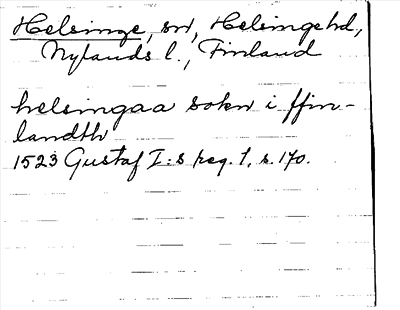 Helsinge, sn, Helsinge hd,
Nylands l., Finland
helsingaa sokn i ffin-
landth
1523 Gustaf I:s reg. 1, s. 170.